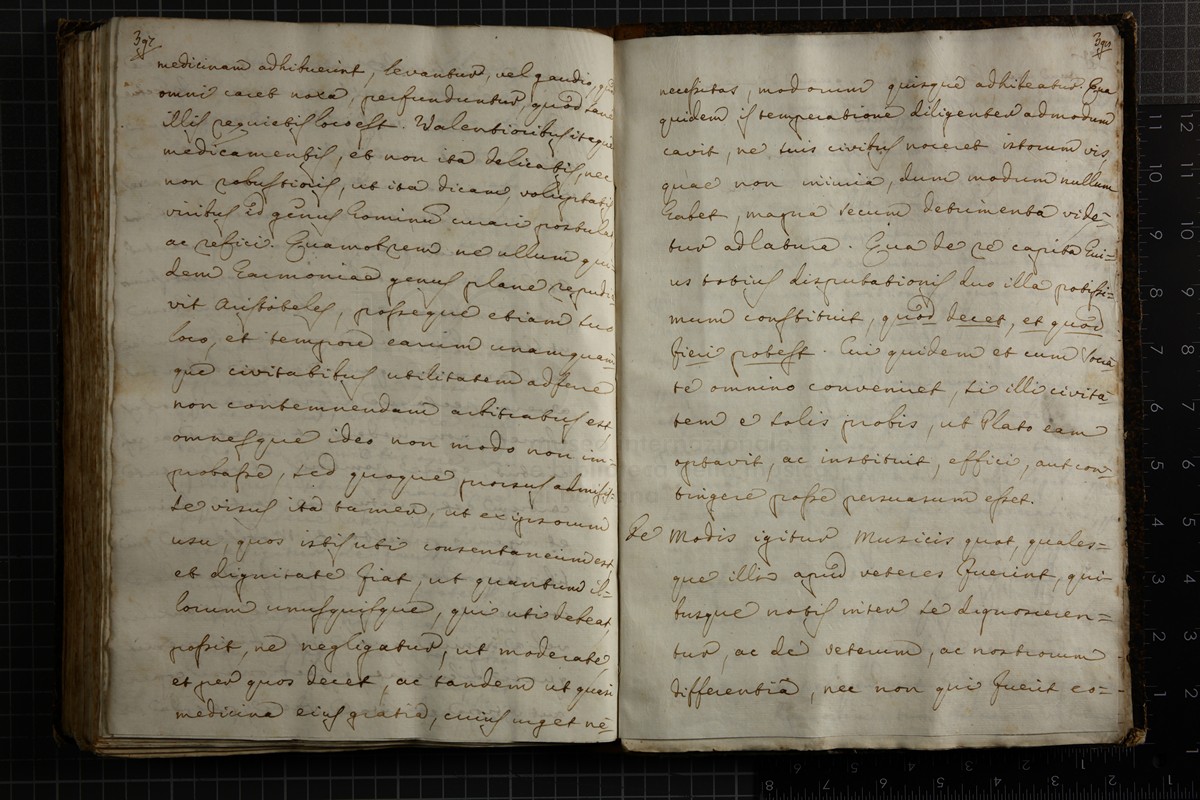 392
medicinam adhibuerint, levantur, vel gaudio, quod
omni caret noxa, perfunduntur, quod sane
illis requietis loco est. Valentioribus itaque
medicamentis, et non ita delicatis, nec
non robustioris, ut ita dicam, voluptatis
viribus id genus hominum curari postulat
ac refici. Quamobrem ne ullum qui-
dem harmoniae genus plane repudia
vit Aristoteles, posseque etiam suo
loco, et tempore earum unamquam
que civitatibus utilitatem adferre
non contemnendam arbitratus est
omnesque ideo non modo non im-
probasse, sed quoque prorsus admisis-
se visus ita tamen, ut ex ipsorum
usu, quos istis uti consentaneum est,
et dignitate fiat, ut quantum il-
lorum unusquisque, qui uti debeat,
possit, ne negligatur, ut moderate,
et per quos decet, ac tandem ut quasi
medicina eius gratia, cuius urget ne=
necessitas, modorum quisque adhibeatur. Qua
quidem is temperatione diligenter admodum
cavit, ne suis civibus noceret istorum vis
quae non nimia, dum modum nullum
habet, magna secum detrimenta vide=
tur adlatura. Qua de re capita hui=
us totius disputationis duo illa potissi=
mum constituit, quod decet, et quod
fieri potest. Cui quidem et cum Socra
te omnino conveniret, si illi civita
tem e solis probis, ut Plato eam
optavit, ac instituit, effici, aut con
tingere posse persuasum esset.
De Modis igitur Musicis quot, quales=
que illi apud veteres fuerint, qui
busque notis inter se dignosceren=
tur, ac de veterum, ac nostrorum
differentia, nec non qui fuerit eo=